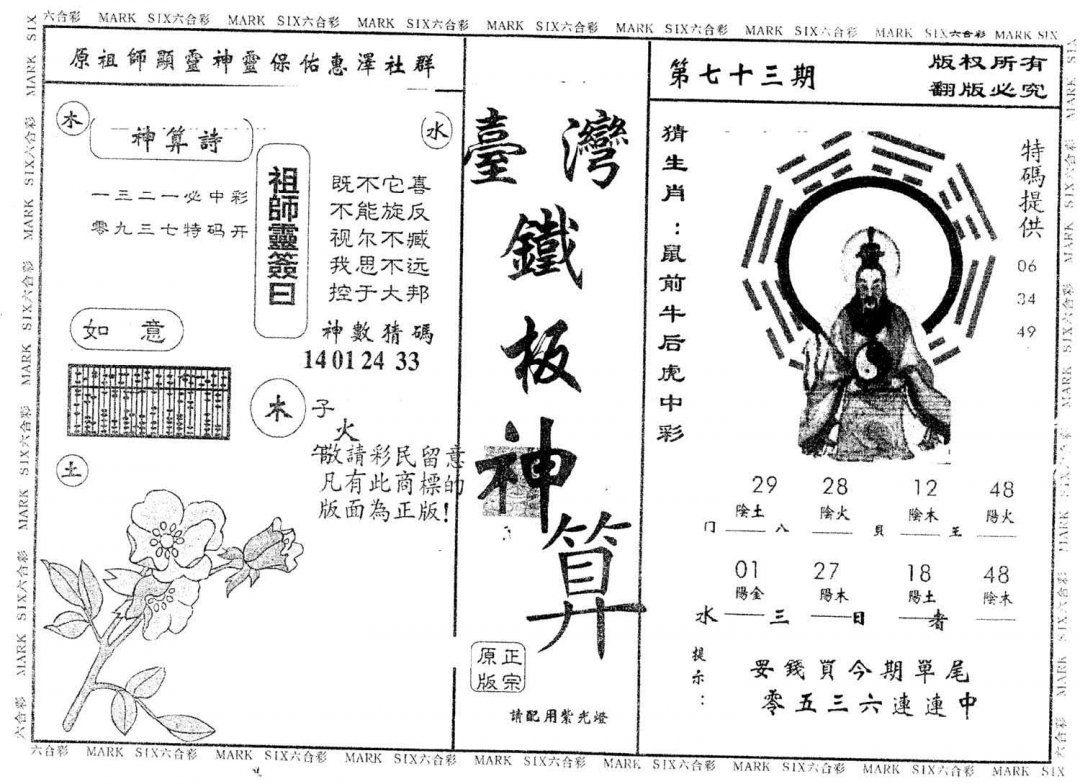 六合彩 MARK SIX六合彩 MARK SIX六合彩 MARK SIX六合彩 MARK SIX六合彩 MARK SIX六合彩 MARK SIX六合彩 MARK SIX六合彩 MARK SIX
原祖師顯靈神靈保佑惠澤社群
木
神算詩
水
一三二一必中彩
零九三七特码开
祖師靈簽曰
既不它喜
不能旋反
视尔不臧
我思不远
控于大邦
神數猜碼
14 01 24 33
如意
木
子
火
午
敬請彩民留意
凡有此商標的
版面為正版!
土
臺灣
鐵板神算
正宗原版
請配用紫光燈
第七十三期
版权所有
翻版必究
猜生肖:鼠前牛后虎中彩
特碼提供
06
34
49
29 28 12 48
陰土 陰火 陰木 陽火
门 八 貝 王
01 27 18 48
陽金 陽木 陽土 陰木
水 三 日 者
提示:
要錢買今期單尾
零五三六連連中
六合彩 MARK SIX六合彩 MARK SIX六合彩 MARK SIX六合彩 MARK SIX六合彩 MARK SIX六合彩 MARK SIX六合彩 MARK SIX六合彩 MARK SIX